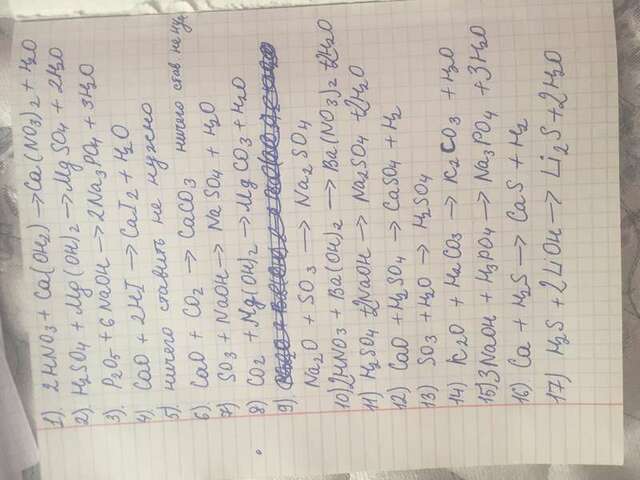 1). 2HNO3 + Ca(OH2) → Ca(NO3)2 + H2O
2) H2SO4 + Mg(OH)2 → MgSO4 + 2H2O
3) P2O5 + 6NaOH → 2Na3PO4 + 3H2O
4) CaO + 2HI → CaI2 + H2O
5) ничего ставить не нужно
6) CaO + CO2 → CaCO3 ничего став. не
7) SO3 + NaOH → NaSO4 + H2O
8) CO2 + Mg(OH)2 → MgCO3 + H2O
9)
Na2O + SO3 → Na2SO4
10) 2HNO3 + Ba(OH)2 → Ba(NO3)2 + 2H2O
11) H2SO4 + 2NaOH → Na2SO4 + 2H2O
12) CaO + H2SO4 → CaSO4 + H2
13) SO3 + H2O → H2SO4
14) K2O + H2CO3 → K2CO3 + H2O
15) 3NaOH + H3PO4 → Na3PO4 + 3H2O
16) Ca + H2S → CaS + H2
17) H2S + 2LiOH → Li2S + 2H2O